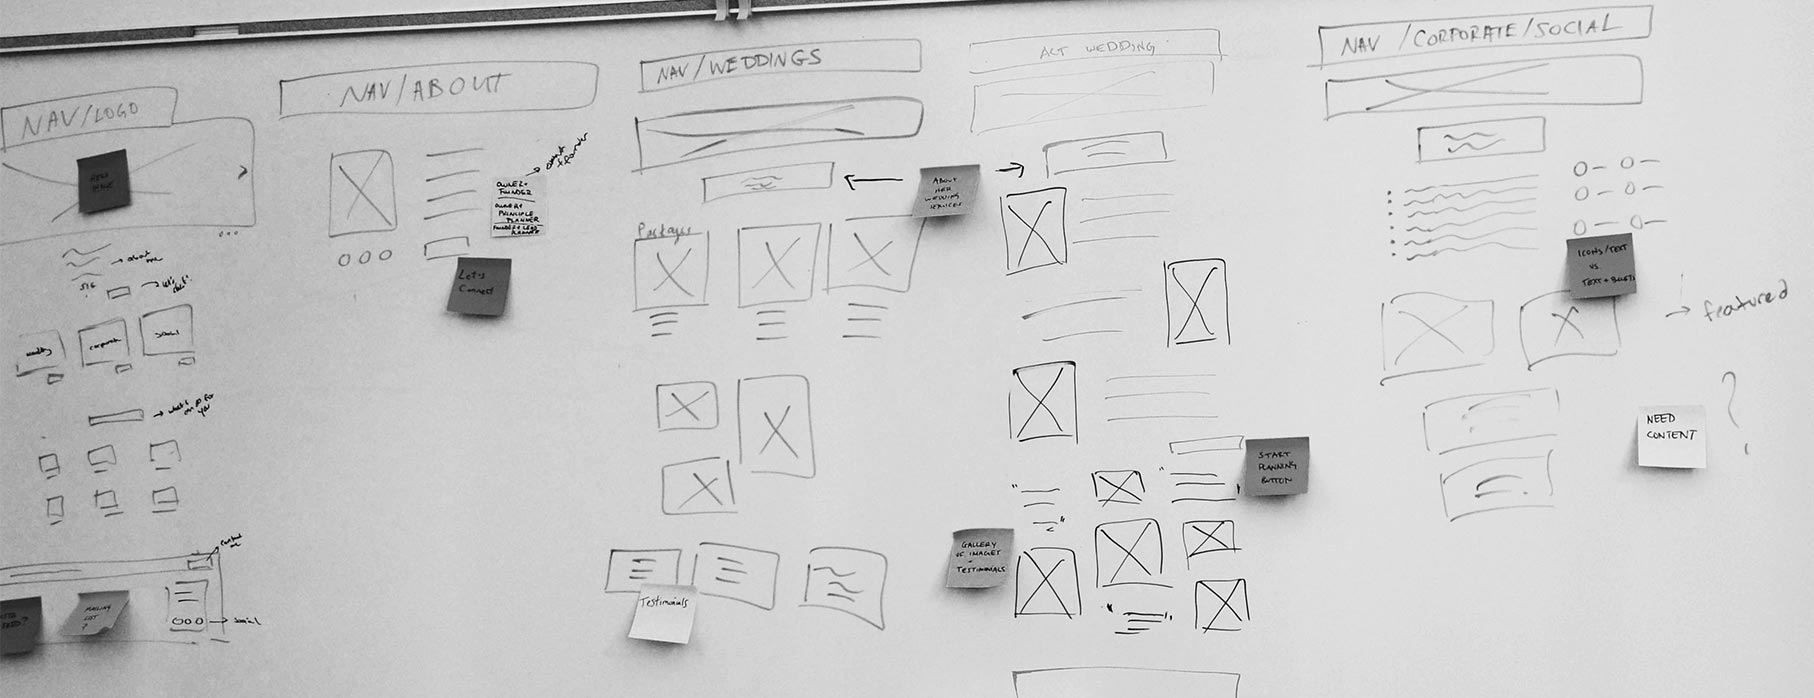 NAV/LOGO
HERO
IMAGE
→ about
me
SIG
→ let's
chat!
wedding
corporate
social
→ what's
on go for
you
contact
me
MAILING
LIST
?
→ social
NAV/ABOUT
→ owner
& founder
OWNER +
FOUNDER
OWNER +
PRINCIPLE
PLANNER
FOUNDER + LEAD
PLANNER
Let's
Connect
NAV/WEDDINGS
Packages
Testimonials
ABOUT
HER
WEDDING
SERVICES
ALT WEDDING
START
PLANNING
BUTTON
GALLERY
OF IMAGES
+
TESTIMONIALS
NAV /CORPORATE/SOCIAL
ICONS/TEXT
VS.
TEXT + BULLETS
→ featured
NEED
CONTENT
?